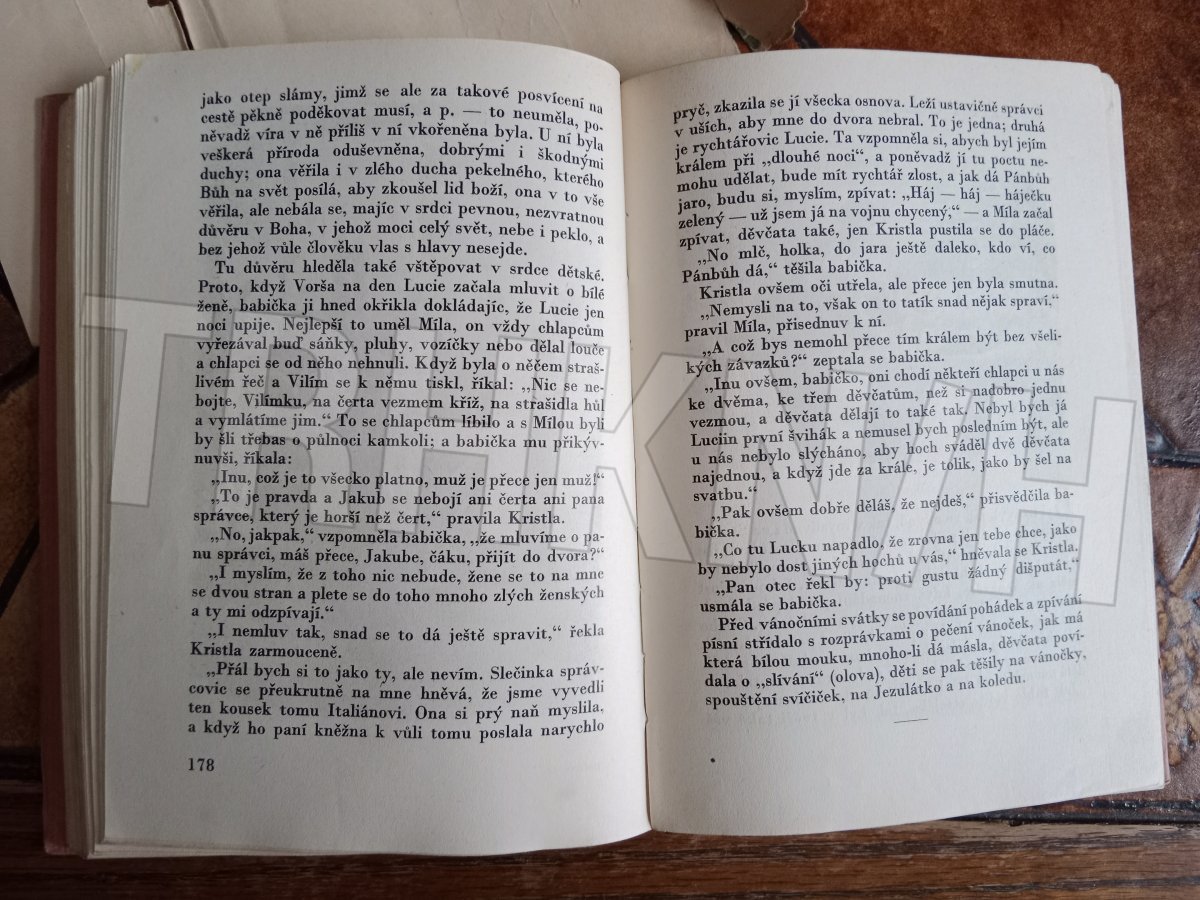 jako otep slámy, jimž se ale za takové posvícení na
cestě pěkně poděkovat musí, a p. — to neuměla, po-
něvadž víra v ně příliš v ní vkořeněna byla. U ní byla
veškerá příroda oduševněna, dobrými i škodnými
duchy; ona věřila i v zlého ducha pekelného, kterého
Bůh na svět posílá, aby zkoušel lid boží, ona v to vše
věřila, ale nebála se, majíc v srdci pevnou, nezvratnou
důvěru v Boha, v jehož moci celý svět, nebe i peklo, a
bez jehož vůle člověku vlas s hlavy nesejde.
Tu důvěru hleděla také vštěpovat v srdce dětské.
Proto, když Vorša na den Lucie začala mluvit o bílé
ženě, babička ji hned okřikla dokládajíc, že Lucie jen
noci upije. Nejlepší to uměl Míla, on vždy chlapcům
vyřezával buď sáňky, pluhy, vozíčky nebo dělal louče
a chlapci se od něho nehnuli. Když byla o něčem straš-
livém řeč a Vilím se k němu tiskl, říkal: „Nic se ne-
bojte, Vilímku, na čerta vezmem kříž, na strašidla hůl
a vymlátíme jim.“ To se chlapcům líbilo a s Mílou byli
by šli třebas o půlnoci kamkoli; a babička mu přikýv-
nuvši, říkala:
„Inu, což je to všecko platno, muž je přece jen muž!“
„To je pravda a Jakub se nebojí ani čerta ani pana
správce, který je horší než čert,“ pravila Kristla.
„No, jakpak,“ vzpomněla babička, „že mluvíme o pa-
nu správci, máš přece, Jakube, čáku, přijít do dvora?“
„I myslím, že z toho nic nebude, žene se to na mne
se dvou stran a plete se do toho mnoho zlých ženských
a ty mi odzpívají.“
„I nemluv tak, snad se to dá ještě spravit,“ řekla
Kristla zarmouceně.
„Přál bych si to jako ty, ale nevím. Slečinka správ-
covic se přeukrutně na mne hněvá, že jsme vyvedli
ten kousek tomu Italiánovi. Ona si prý naň myslila,
a když ho paní kněžna k vůli tomu poslala narychlo
178
pryč, zkazila se jí všecka osnova. Leží ustavičně správci
v uších, aby mne do dvora nebral. To je jedna; druhá
je rychtářovic Lucie. Ta vzpomněla si, abych byl jejím
králem při „dlouhé noci“, a poněvadž jí tu poctu ne-
mohu udělat, bude mít rychtář zlost, a jak dá Pánbůh
jaro, budu si, myslím, zpívat: „Háj — háj — háječku
zelený — už jsem já na vojnu chycený,“ — a Míla začal
zpívat, děvčata také, jen Kristla pustila se do pláče.
„No mlč, holka, do jara ještě daleko, kdo ví, co
Pánbůh dá,“ těšila babička.
Kristla ovšem oči utřela, ale přece jen byla smutna.
„Nemysli na to, však on to tatík snad nějak spraví.“
pravil Míla, přisednuv k ní.
„A což bys nemohl přece tím králem být bez všeli-
kých závazků?“ zeptala se babička.
„Inu ovšem, babičko, oni chodí někteří chlapci u nás
ke dvěma, ke třem děvčatům, než si nadobro jednu
vezmou, a děvčata dělají to také tak. Nebyl bych já
Luciin první švihák a nemusel bych posledním být, ale
u nás nebylo slýcháno, aby hoch sváděl dvě děvčata
najednou, a když jde za krále, je tolik, jako by šel na
svatbu.“
„Pak ovšem dobře děláš, že nejdeš,“ přisvědčila ba-
bička.
„Co tu Lucku napadlo, že zrovna jen tebe chce, jako
by nebylo dost jiných hochů u vás,“ hněvala se Kristla.
„Pan otec řekl by: proti gustu žádný dišputát,“
usmála se babička.
Před vánočními svátky se povídání pohádek a zpívání
písní střídalo s rozprávkami o pečení vánoček, jak má
která bílou mouku, mnoho-li dá másla, děvčata poví-
dala o „slívání“ (olova), děti se pak těšily na vánočky,
spouštění svíčiček, na Jezulátko a na koledu.
TRHKNIH